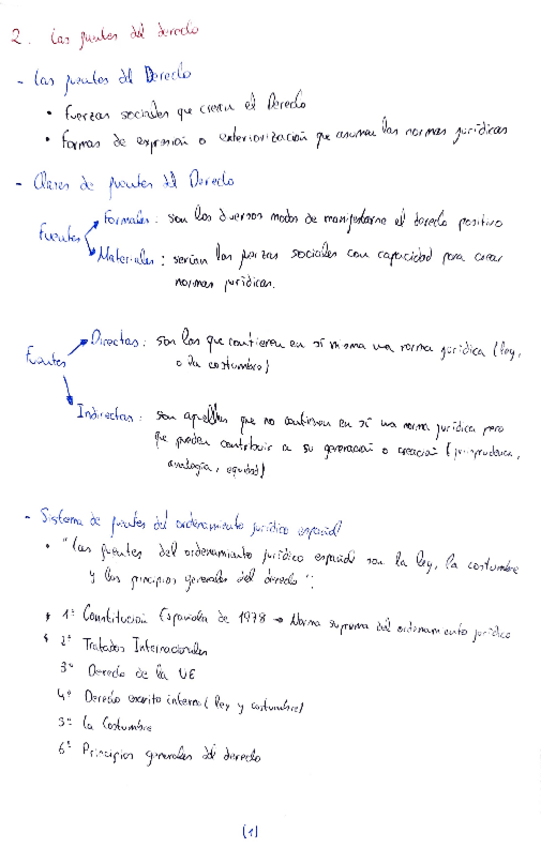 2. Las fuentes del derecho
- Las fuentes del Derecho
• Fuerzas sociales que crean el Derecho
• Formas de expresión o exteriorización que asumen las normas jurídicas
- Clases de fuentes del Derecho
Fuentes
Formales: son los diversos modos de manifestarse el derecho positivo
Materiales: serían las fuerzas sociales con capacidad para crear
normas jurídicas.
Fuentes
Directas: son las que contienen en sí misma una norma jurídica (ley,
o la costumbre)
Indirectas: son aquellas que no contienen en sí una norma jurídica pero
que pueden contribuir a su generación o creación (jurisprudencia,
analogía, equidad)
- Sistema de fuentes del ordenamiento jurídico español
• "Las fuentes del ordenamiento jurídico español son la ley, la costumbre
y los principios generales del derecho".
1º Constitución Española de 1978 → Norma suprema del ordenamiento jurídico
2º Tratados Internacionales
3º Derecho de la UE
4º Derecho escrito interno (ley y costumbre)
5º La Costumbre
6º Principios generales del derecho
(1)